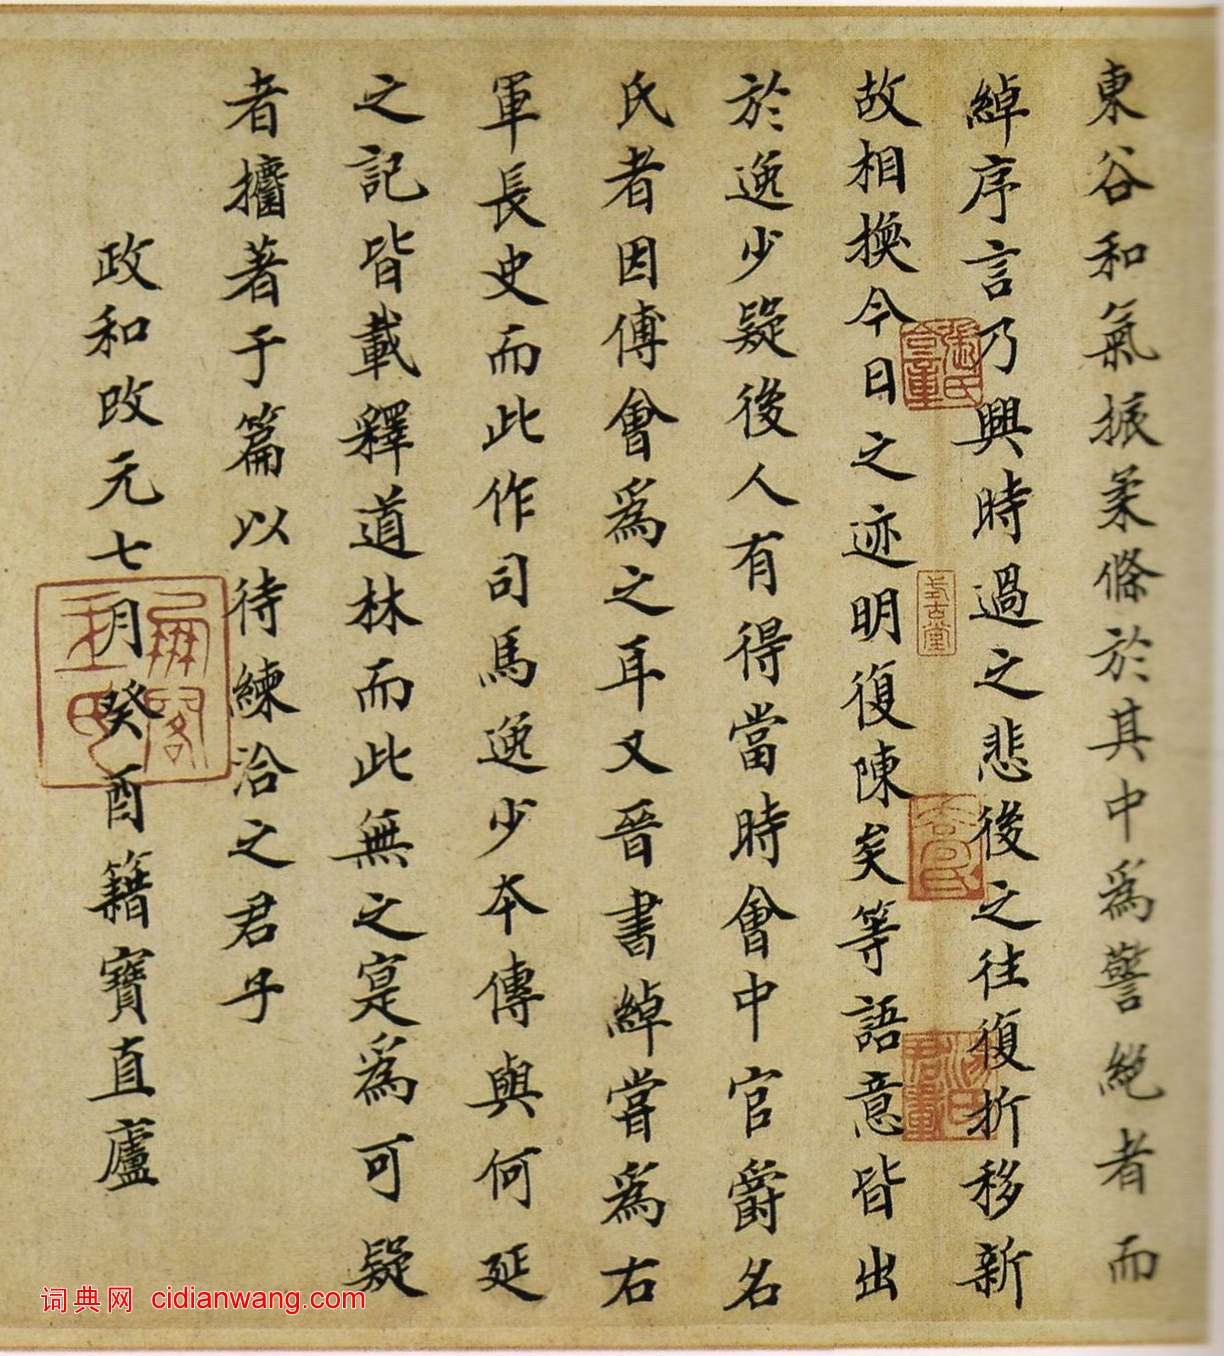 東谷和氣振柔條於其中為警絕者而
綽序言乃興時過之悲後之往復折移新
故相換今日之迹明復陳矣等語意皆出
於逸少疑後人有得當時會中官爵名
氏者因傅會爲之耳又晉書綽嘗爲右
軍長史而此作司馬逸少本傳與何延
之記皆載釋道林而此無之寔爲可疑
者攟著于篇以待練洽之君子
政和改元七月癸酉籍寶直廬
張氏
弍古堂
高氏
词典网 cidianwang.com